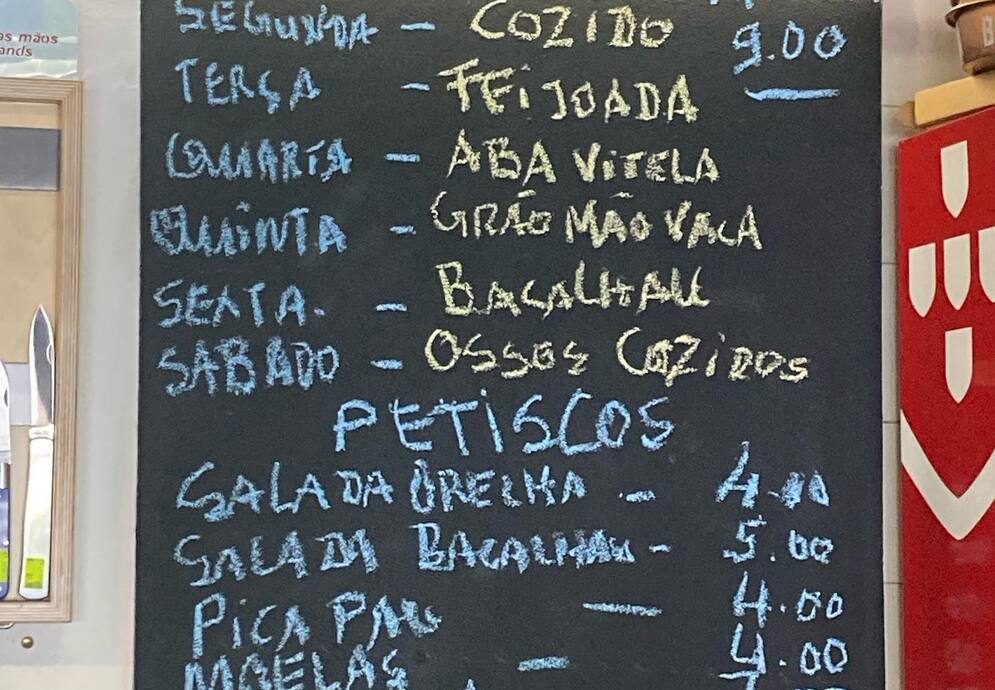 as mãos
ands
SEGUNDA - COZIDO 9.00
TERÇA - FEIJOADA
QUARTA - ABA VITELA
QUINTA - GRÃO MÃO VACA
SEXTA. - BACALHAU
SABADO - OSSOS COZIDOS
PETISCOS
SALADA ORELHA - 4.00
SALADA BACALHAU - 5.00
PICA PAU - 4.00
MOELAS - 4.00